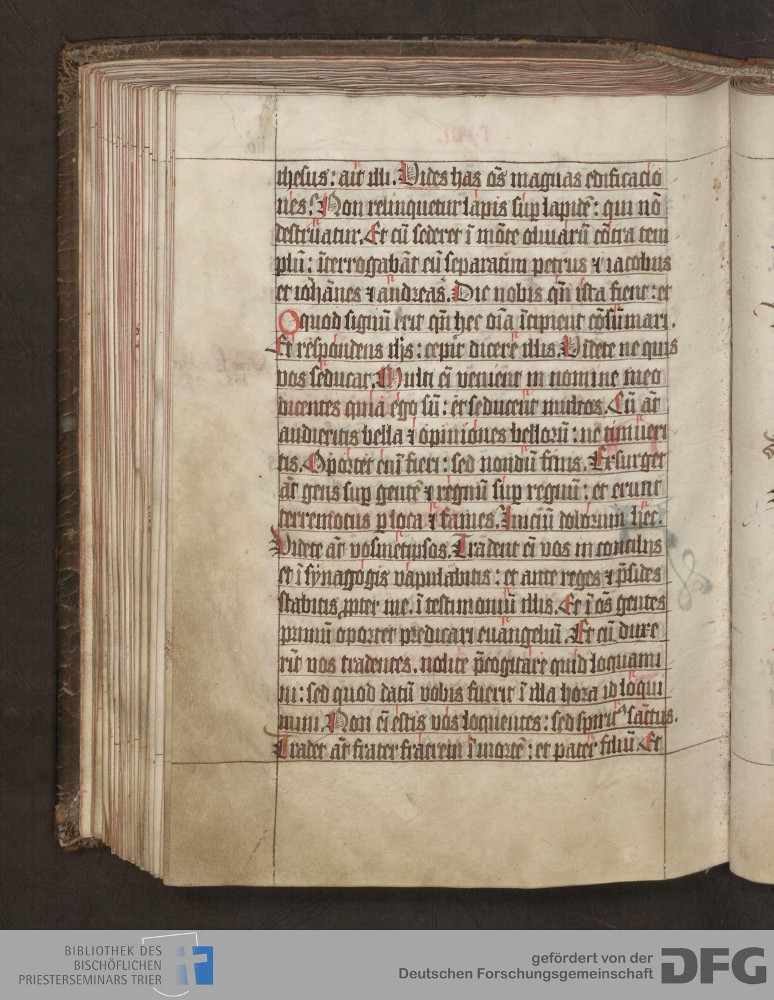 ihesus: ait illi. Vides has o̅s magnas edificacio
nes? Non relinquetur lapis sup̱ lapide̅: qui no̅
destruatur. Et cu̅ sederet i̅ mo̅te oliuaru̅ co̅tra tem
plu̅: i̅terrogaba̅t eu̅ separatim petrus ⁊ iacobus
et ioha̅nes ⁊ andreas. Dic nobis qn̅ ista fient: et
Quod signu̅ erit qn̅ hec oi̅a i̅cipient co̅su̅mari.
Et respondens ih̅s: cepit dicere illis. Videte ne quis
vos seducat. Multi ei̅ venient in nomine meo
dicentes quia ego su̅: et seducent multos. Cu̅ at̅
audieritis bella ⁊ opiniones belloru̅: ne timueri
tis. Oportet eni̅ fieri: sed nondu̅ finis. Exsurget
at̅ gens sup̱ gente̅ ⁊ regnu̅ sup̱ regnu̅: et erunt
terremotus p̱ loca ⁊ fames. Iniciu̅ dolorum hec.
Videte at̅ vosmetipsos. Tradent ei̅ vos in conciliis
et i̅ synagogis vapulabitis: et ante reges ⁊ p̅sides
stabitis ꝓpter me. i̅ testimoniu̅ illis. Et i̅ o̅s gentes
primu̅ oportet predicari euangeliu̅. Et cu̅ duxe
rit̅ vos tradentes. nolite p̅cogitare quid loquami
ni: sed quod datu̅ vobis fuerit i̅ illa hora id loqui
mini. Non ei̅ estis vos loquentes: sed spiritꝰ sanctus.
Tradet at̅ frater fratrem i̅ morte̅: et pater filiu̅. Et
BIBLIOTHEK DES
BISCHÖFLICHEN
PRIESTERSEMINARS TRIER
gefördert von der
Deutschen Forschungsgemeinschaft
DFG